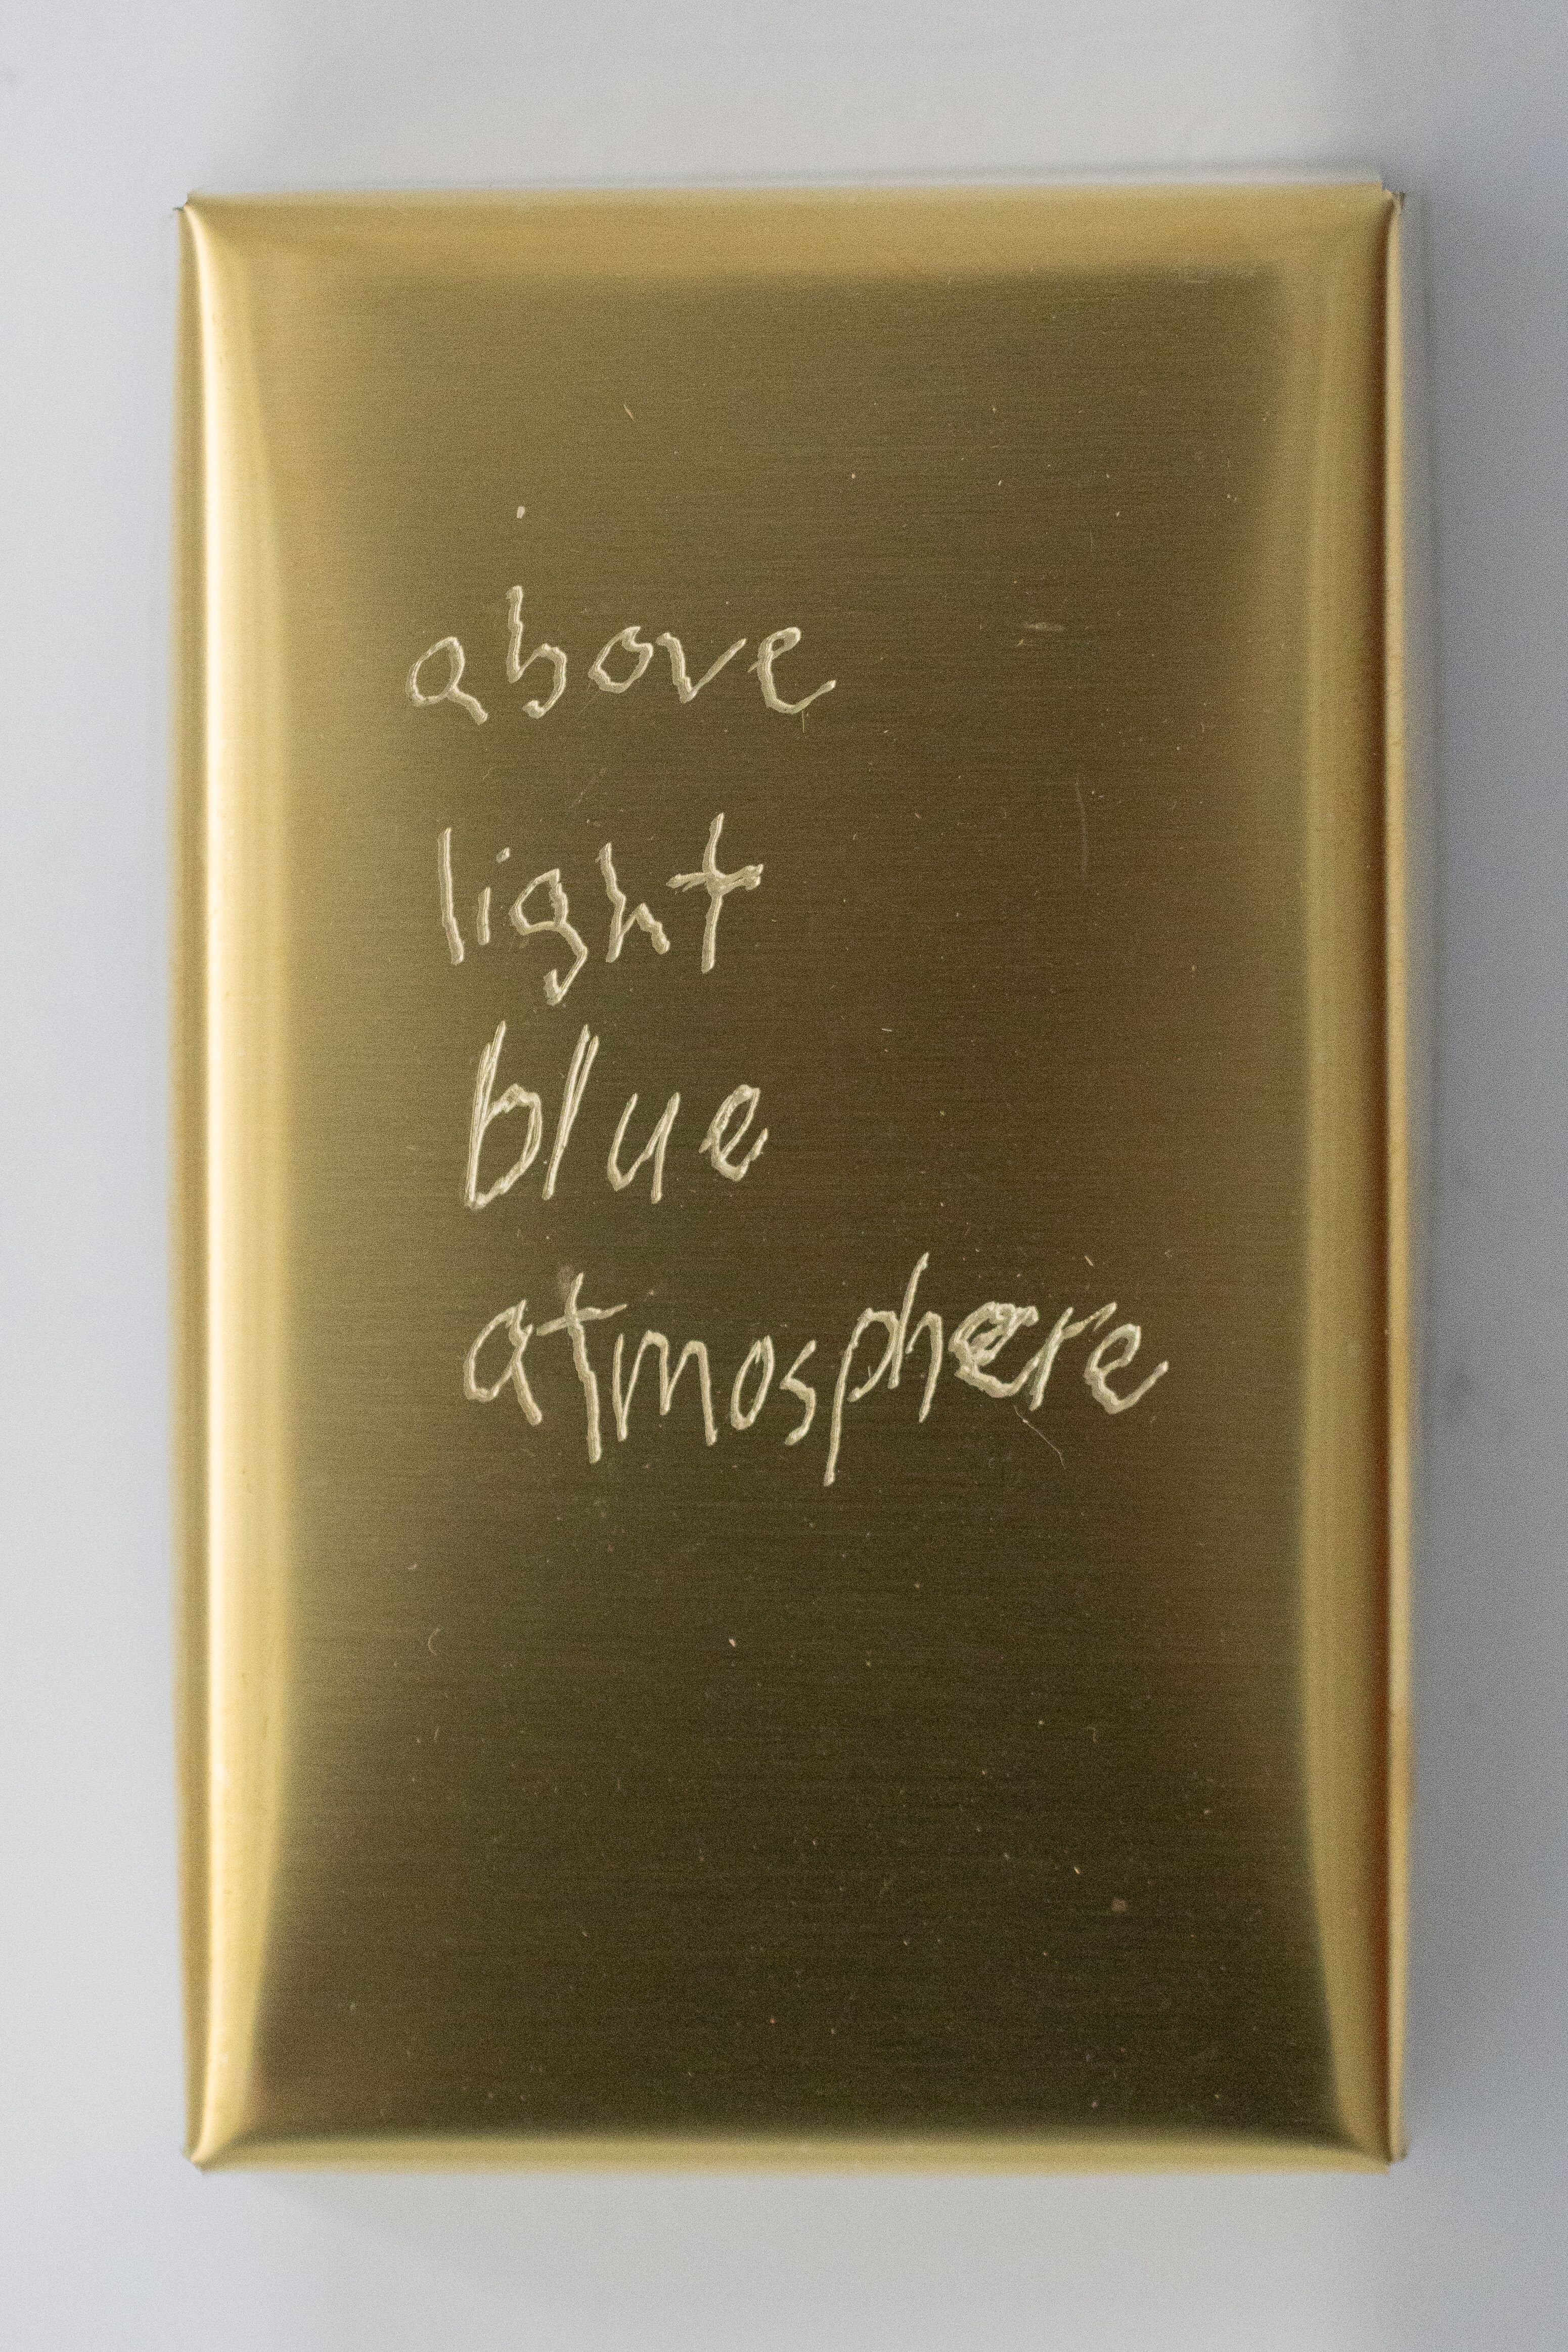 above
light
blue
atmosphere